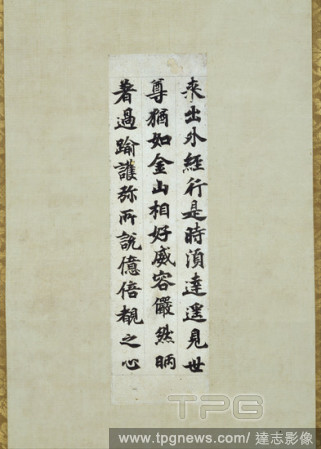 来出外經行是時湏達遥見世
尊猶如金山相好威容儼然昞
著過踰護弥所說億倍覩之心
TPG
www.tpgnews.com / 達志影像